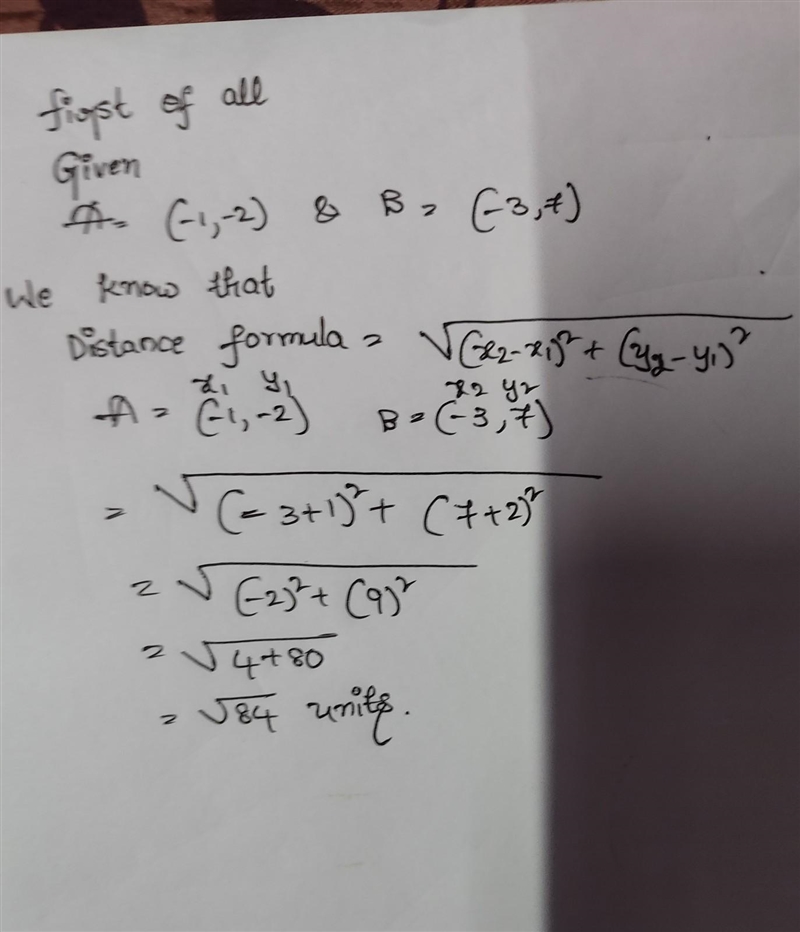 first of all
Given
A = (-1,-2) & B = (-3,7)
We know that
Distance formula = √(x₂-x₁)² + (y₂-y₁)²
x₁ y₁ x₂ y₂
A = (-1,-2) B = (-3,7)
= √(-3+1)² + (7+2)²
= √(-2)² + (9)²
= √4+80
= √84 units.